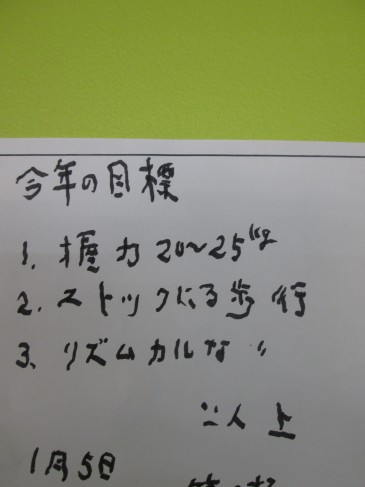 今年の目標
1. 握力 20~25kg
2. ストックによる歩行
3. リズムカルな 〃
以上
1月5日